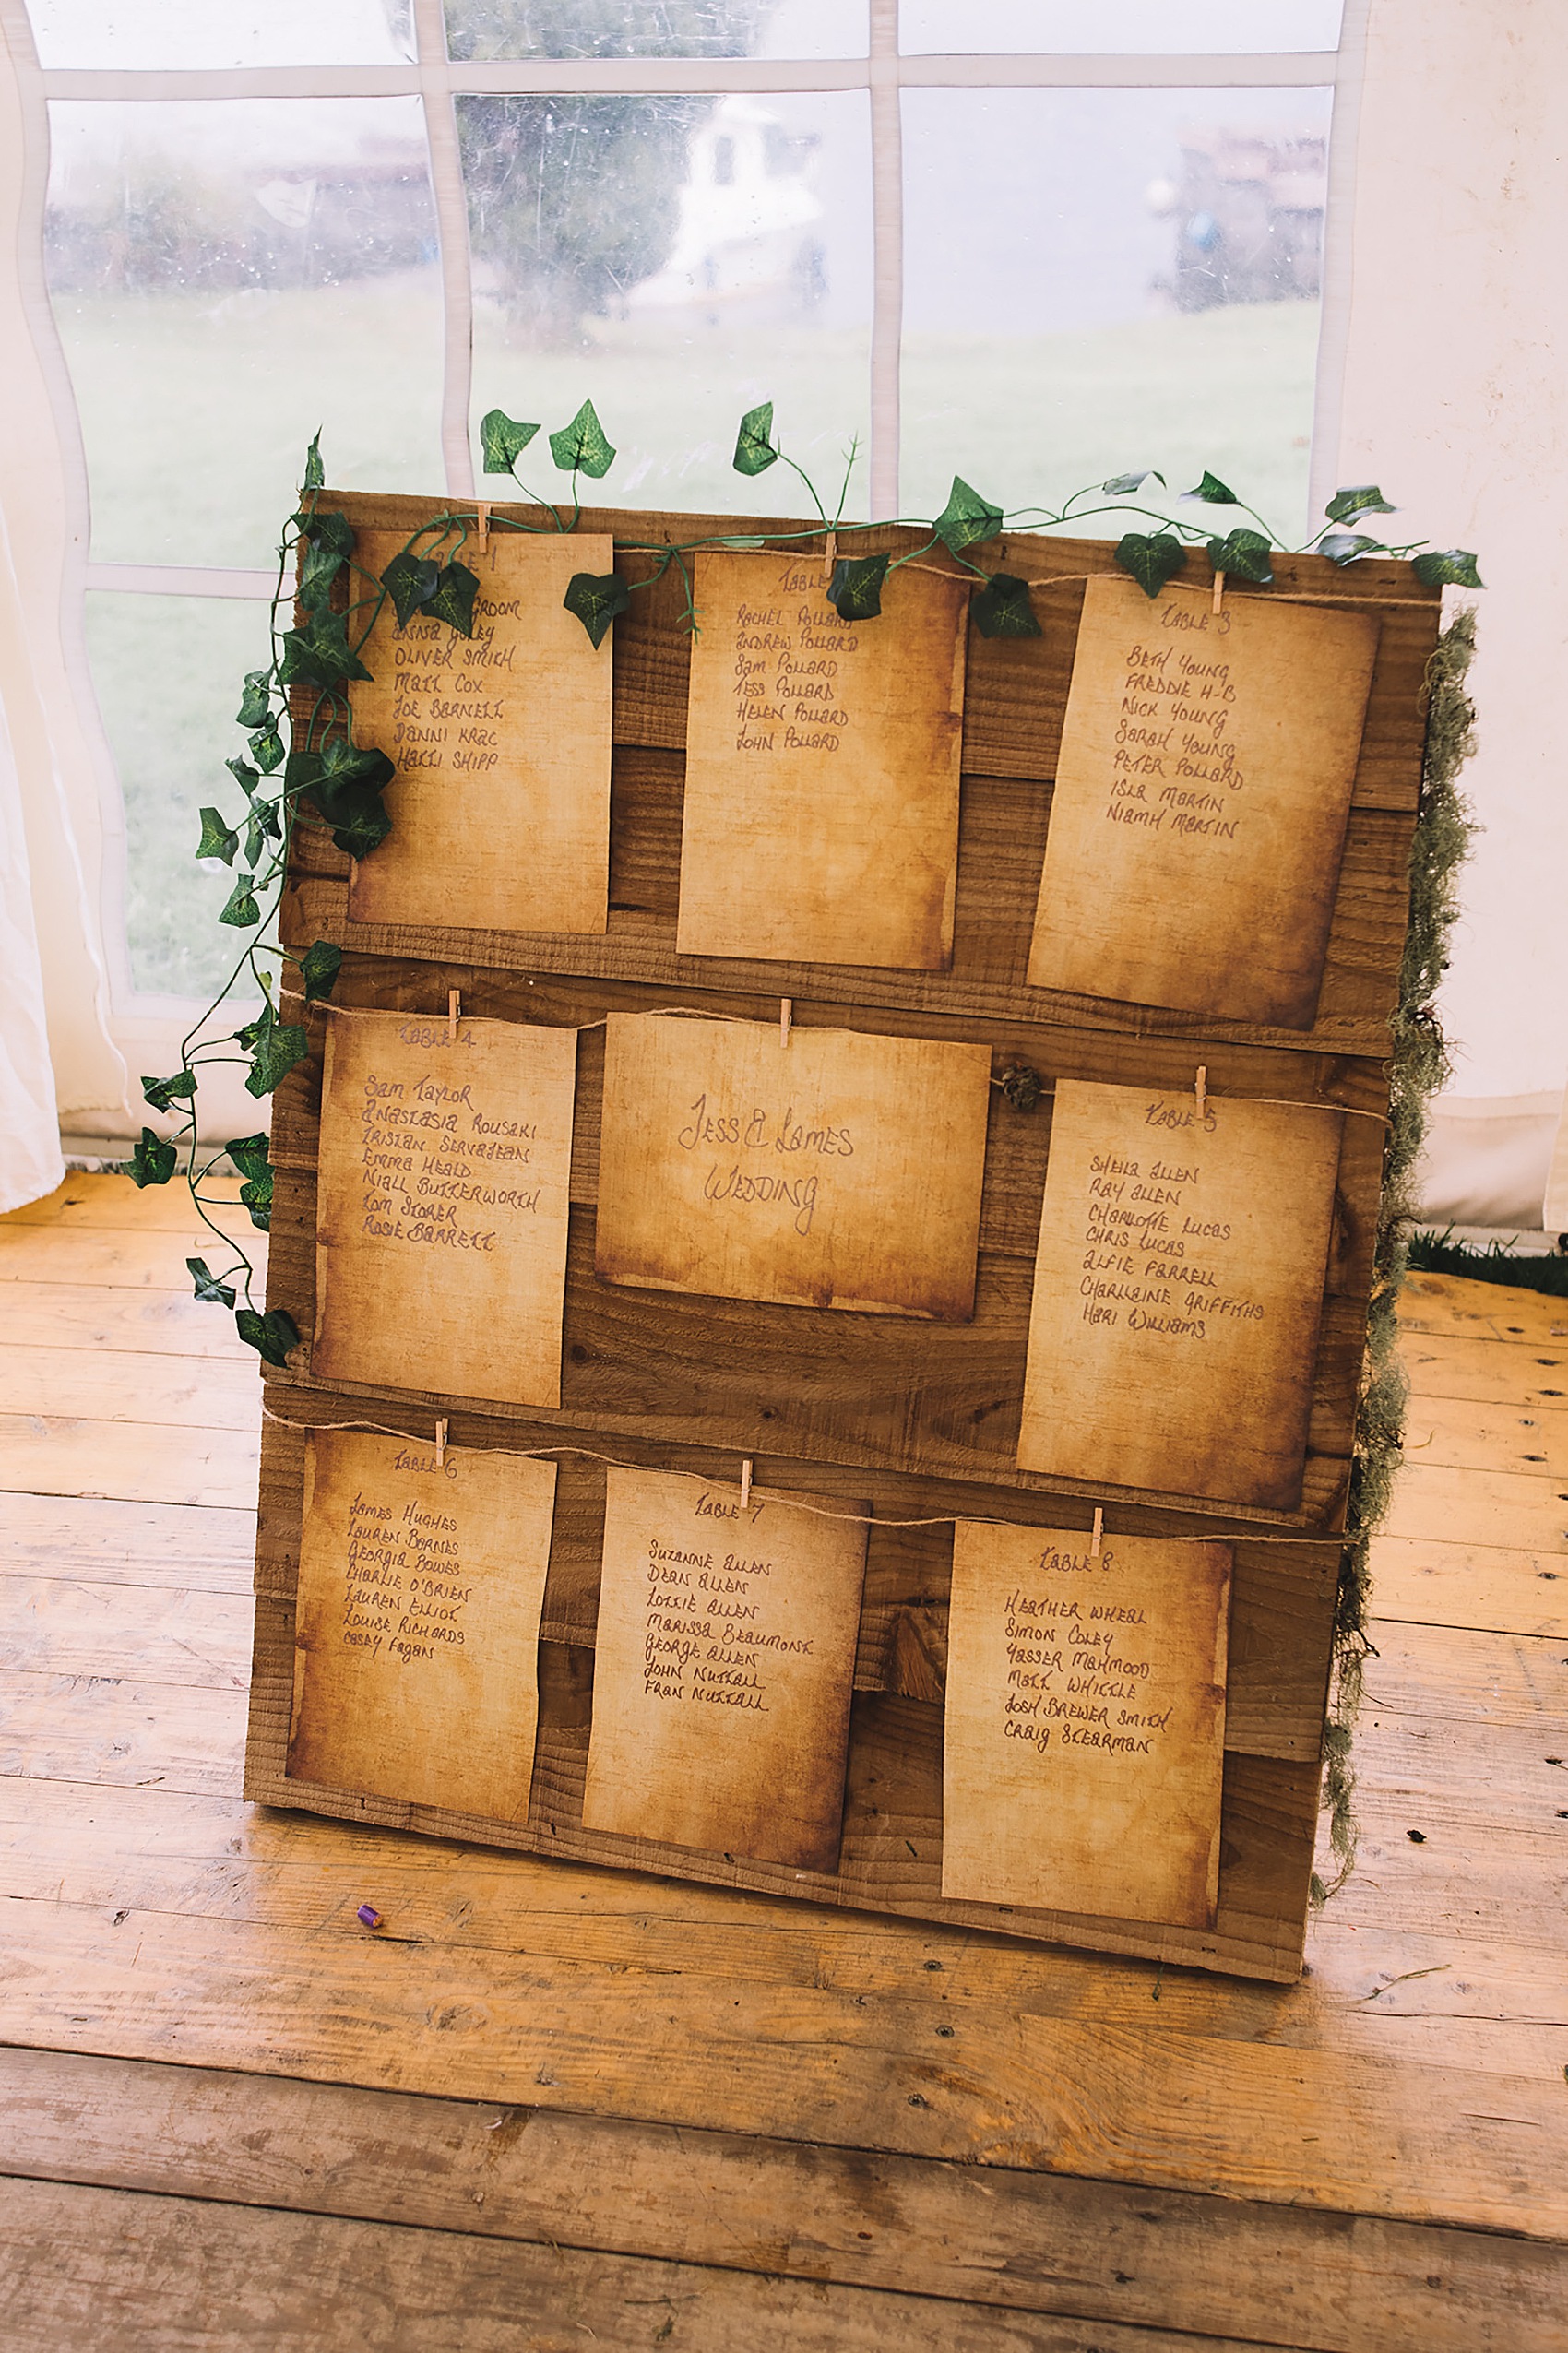 GROOM
OLIVER SMITH
MATT COX
JOE BARNETT
DANNI KRAC
HATTI SHIPP
TABLE
RACHEL POLLARD
ANDREW POLLARD
SAM POLLARD
JESS POLLARD
HELEN POLLARD
JOHN POLLARD
TABLE 3
BETH YOUNG
FREDDIE H-B
NICK YOUNG
SARAH YOUNG
PETER POLLARD
ISLA MARTIN
NIAMH MARTIN
TABLE 4
SAM TAYLOR
ANASTASIA ROUSAKI
TRISTAN SERVAJEAN
EMMA HEALD
NIALL BUTTERWORTH
TOM STORER
ROSIE BARRETT
JESS & JAMES
WEDDING
TABLE 5
SHEILA ALLEN
RAY ALLEN
CHARLOTTE LUCAS
CHRIS LUCAS
ALFIE FARRELL
CHARLAINE GRIFFITHS
HARI WILLIAMS
TABLE 6
JAMES HUGHES
LAUREN BARNES
GEORGIA BOWES
CHARLIE O'BRIEN
LAUREN ELLIOT
LOUISE RICHARDS
CASEY FAGAN
TABLE 7
SUZANNE ALLEN
DEAN ALLEN
LOTTIE ALLEN
MARISSA BEAUMONT
GEORGE ALLEN
JOHN NUTTALL
FRAN NUTTALL
TABLE 8
HEATHER WHEAL
SIMON COLEY
YASSER MAHMOOD
MATT WHITTLE
JOSH BREWER SMITH
CRAIG STEARMAN